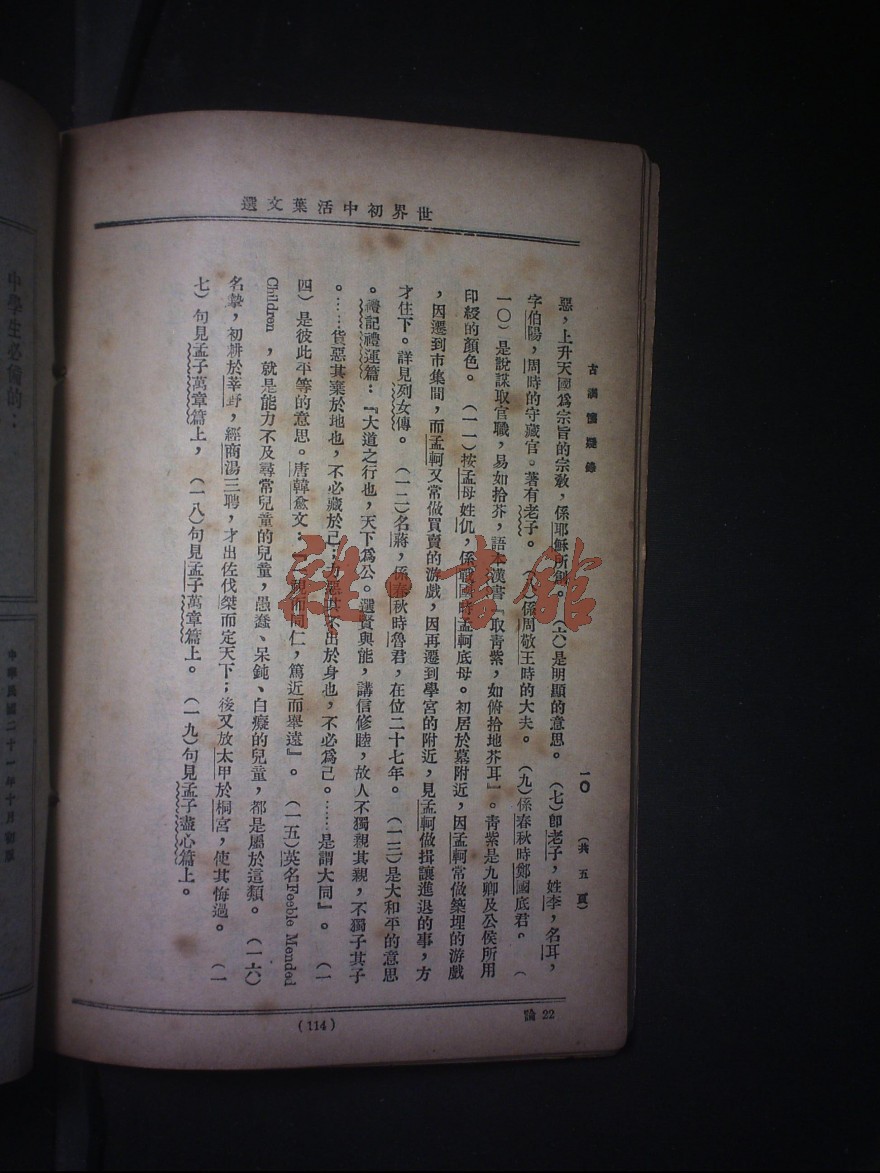 世界初中活葉文選
古
疑錄
一〇
(共五頁)
惡，上升天國爲宗旨的宗敎，係耶穌所創。　(六)是明顯的意思。　(七)卽老子，姓李，名耳，
字伯陽，周時的守藏官。著有老子。　八)係周敬王時的大夫。　(九)係春秋時鄭國底君。　(
一〇)是說謀取官職，易如拾芥，語本漢書『取靑紫，如俯拾地芥耳』。靑紫是九卿及公侯所用
印綬的顏色。　(一一)按孟母姓仉，係戰國時孟軻底母。初居於墓附近，因孟軻常做築埋的游戲
，因遷到市集間，而孟軻又常做買賣的游戲，因再遷到學宮的附近，見孟軻做揖讓進退的事，方
才住下。詳見列女傳。　(一二)名蔣，係春秋時魯君，在位二十七年。　(一三)是大和平的意思
。禮記禮運篇：『大道之行也，天下爲公。選賢與能，講信修睦，故人不獨親其親，不獨子其子
。……貨惡其棄於地也，不必藏於己；力惡其不出於身也，不必爲己。……是謂大同』。　(一
四)是彼此平等的意思。唐韓愈文：『一視而同仁，篤近而舉遠』。　(一五)英名Feeble Mended
Children ，就是能力不及尋常兒童的兒童，愚蠢、呆鈍、白癡的兒童，都是屬於這類。　(一六)
名摯，初耕於莘野，經商湯三聘，才出佐伐桀而定天下；後又放太甲於桐宮，使其悔過。　(一
七)句見孟子萬章篇上，　(一八)句見孟子萬章篇上。　(一九)句見孟子盡心篇上。
(114)
論 22
雜·書館
中學生必備的：
中華民國二十一年十月初版